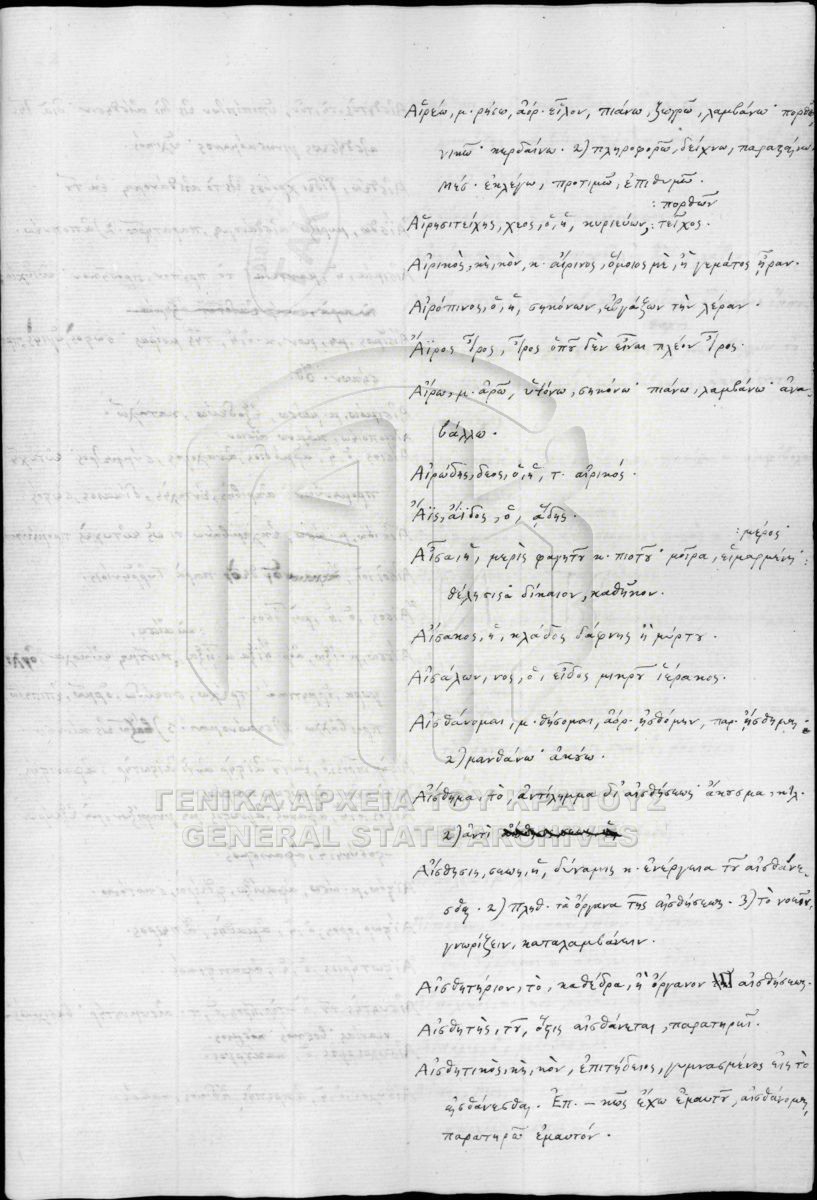 Αἱρέω, μ. ρήσω, ἀόρ. εἷλον, πιάνω, ζωγρῶ, λαμβάνω· πορθῶ,
νικῶ· κερδαίνω. 2) πληροφορῶ, δείχνω,
Μέσ. ἐκλέγω, προτιμῶ, ἐπιθυμῶ.
: πορθῶν
Αἱρησιτείχης, χεος, ὁ, ἡ, κυριεύων, : τεῖχος.
Αἰρικὸς, κὴ, κὸν, κ. αἴρινος, ὅμοιος μὲ, ἢ γεμάτος ἦραν.
Αἰρόπινος, ὁ, ἡ, σηκόνων, εὐγάζων τὴν λέραν.
Ἄϊρος Ἶρος, Ἶρος ὁποῦ δὲν εἶναι πλέον Ἶρος.
Αἴρω, μ. ἀρῶ, ὑψόνω, σηκόνω· πιάνω, λαμβάνω· ἀνα-
βάλλω.
Αἰρώδης, δεος, ὁ, ἡ, τ. αἰρικός.
Ἄϊς, ἄϊδος, ὁ, ᾅδης.
: μέρος
Αἶσα, ἡ, μερὶς φαγητοῦ κ. πιοτοῦ· μοῖρα, εἱμαρμένη :
θέλησις· δίκαιον, καθῆκον.
Αἴσακος, ἡ, κλάδος δάφνης ἢ μύρτου.
Αἰσάλων, νος, ὁ, εἶδος μικροῦ ἱέρακος.
Αἰσθάνομαι, μ. θήσομαι, ἀόρ. ᾐσθόμην, παρ. ᾔσθημαι.
2) μανθάνω· ἀκούω.
Αἴσθημα, τὸ, ἀντίλημμα δι' αἰσθήσεως· ἄκουσμα, κτλ.
2) ἀντὶ
Αἴσθησις, σεως, ἡ, δύναμις κ. ἐνέργεια τοῦ αἰσθάνε-
σθαι. 2) Πληθ. τὰ ὄργανα τῆς αἰσθήσεως. 3) τὸ νοεῖν,
γνωρίζειν, καταλαμβάνειν.
Αἰσθητήριον, τὸ, καθέδρα, ἢ ὄργανον τῆς αἰσθήσεως.
Αἰσθητὴς, τοῦ, ὅστις αἰσθάνεται, παρατηρεῖ.
Αἰσθητικὸς, κὴ, κὸν, ἐπιτήδειος, γυμνασμένος εἰς τὸ
αἰσθάνεσθαι. Ἐπ. — κῶς ἔχω ἐμαυτοῦ, αἰσθάνομαι,
παρατηρῶ ἐμαυτόν.
ΓΕΝΙΚΑ ΑΡΧΕΙΑ ΤΟΥ ΚΡΑΤΟΥΣ
GENERAL STATE ARCHIVES